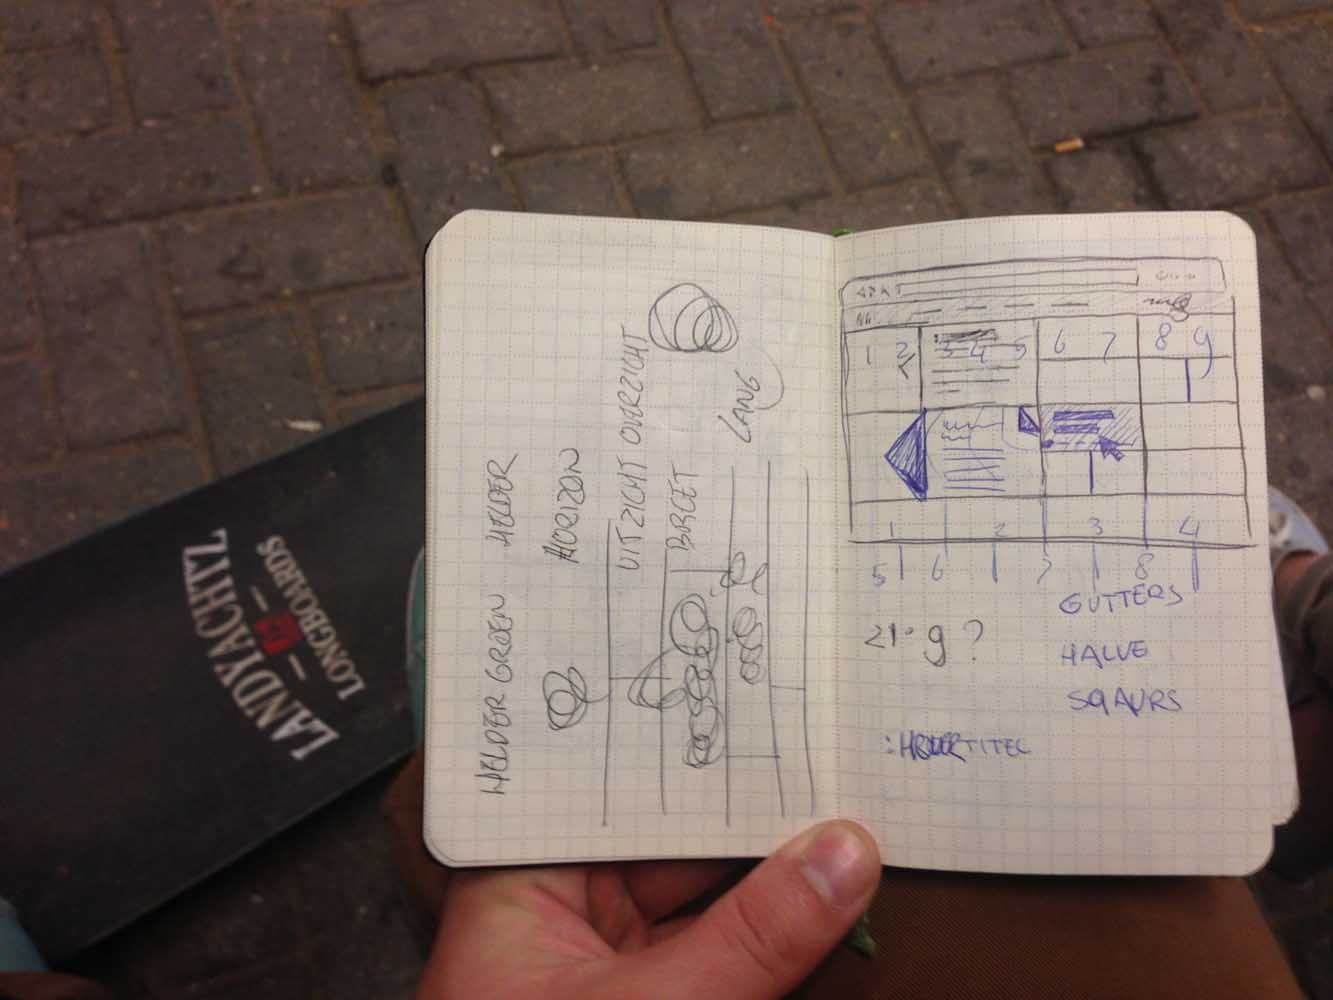 LANDYACHTZ
LONGBOARDS
HELDER GROEN HELDER
HORIZON
UITZICHT OVERZICHT
LANG
1 2 3 4 5 6 7 8 9
1 2 3 4
5 6 7 8
GUTTERS
HALVE
SQAURS